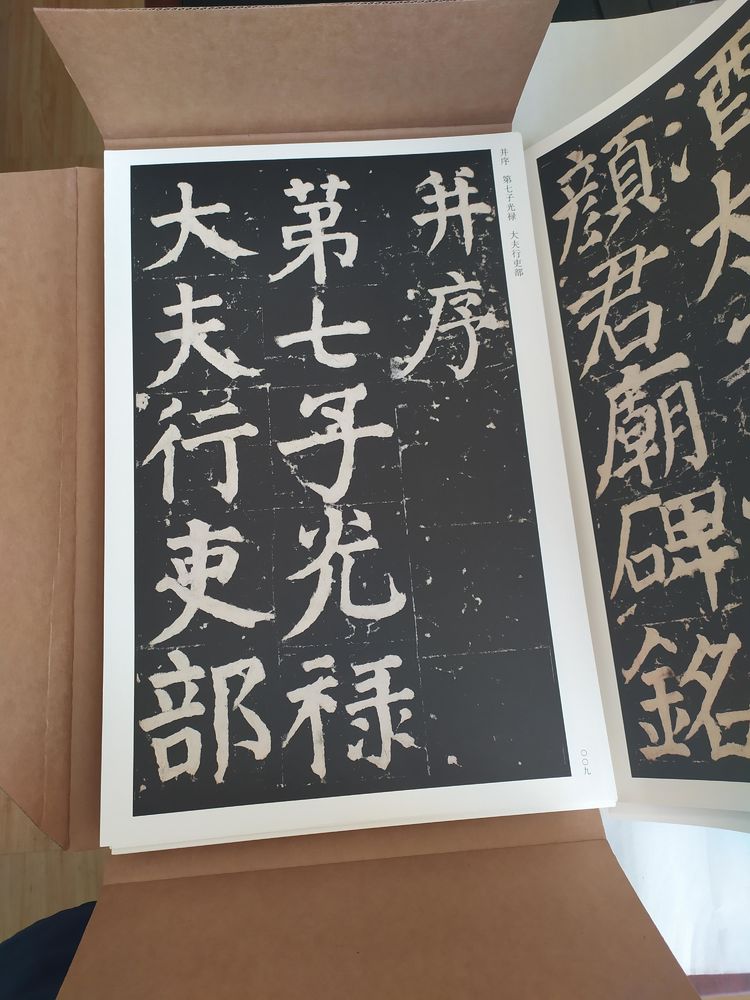 酒太
顔君廟碑銘
并序　第七子光禄　大夫行吏部
并序
苐七子光禄
大夫行吏部
〇〇九